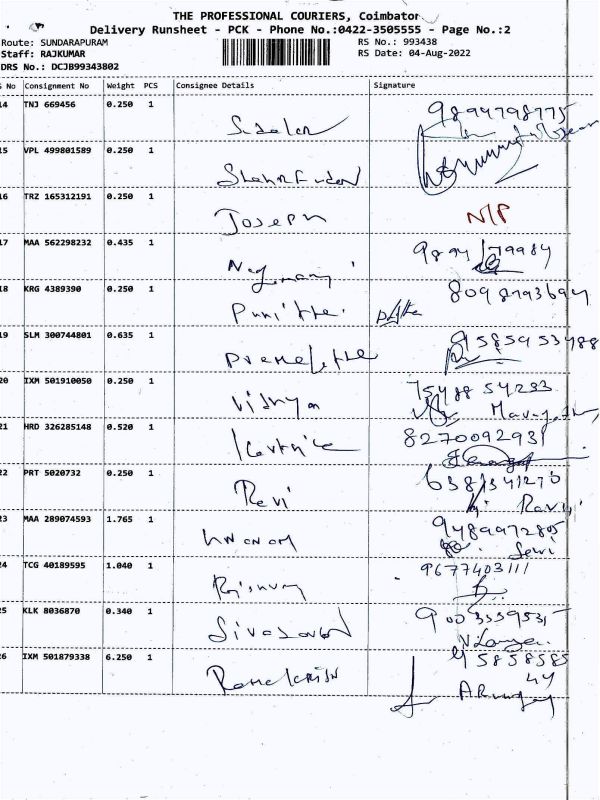 THE PROFESSIONAL COURIERS, Coimbator
Delivery Runsheet - PCK - Phone No.:0422-3505555 - Page No.:2
Route: SUNDARAPURAM RS No.: 993438
Staff: RAJKUMAR RS Date: 04-Aug-2022
DRS No.: DCJB99343802
No Consignment No Weight PCS Consignee Details Signature
14 TNJ 669456 0.250 1 9894798775
15 VPL 499801589 0.250 1
16 TRZ 165312191 0.250 1 Joseph N/P
17 MAA 562298232 0.435 1
18 KRG 4389390 0.250 1 Punitha.
19 SLM 300744801 0.635 1 Premeletha 9585953488
20 IXM 501910050 0.250 1 75488 54233
21 HRD 326285148 0.520 1 Karthick 8270092931
22 PRT 5020732 0.250 1 Revi 6381341270
23 MAA 289074593 1.765 1 9489972805
24 TCG 40189595 1.040 1 9677403111
25 KLK 8036870 0.340 1 9003559535
26 IXM 501879338 6.250 1 Ramakrish 95858585
44